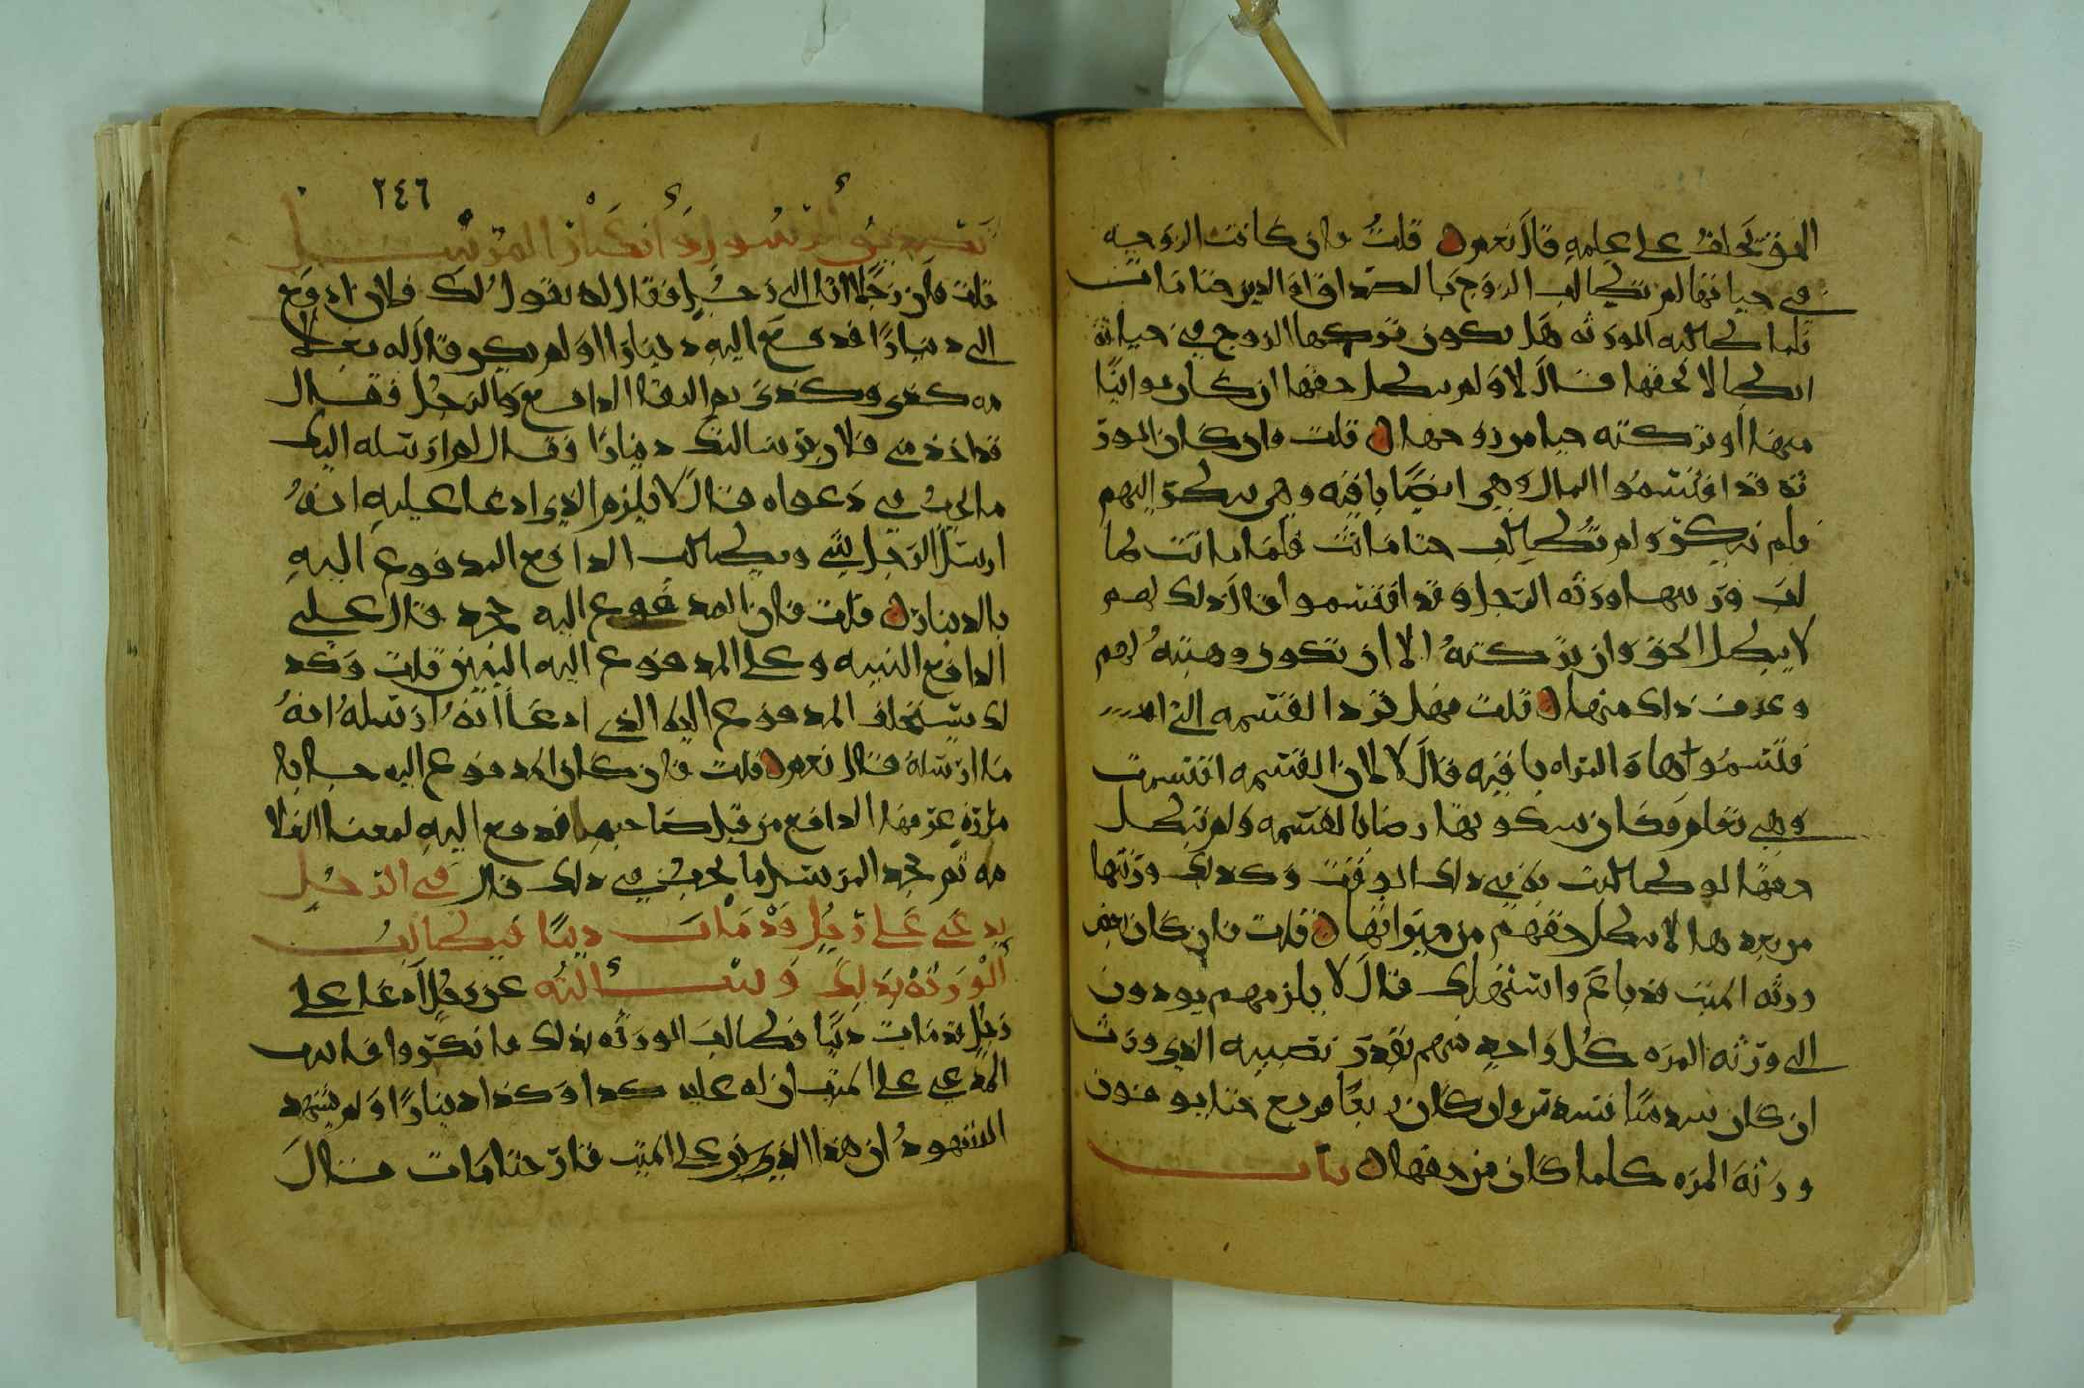 المرة تحلف على علمه قال نعم قلت فان كانت الزوجيه
في حياتها لم تطالب الزوج بالصداق او الدين حتا ماتت
فلما طالبه الورثه هل يكون تركها الزوج في حياته
ابطالا لحقها قال لا ولم يبطل حقها ان كان توانيًا
منها أو تركته حيا من زوجها قلت وان كان الور
ثه قد اقتسموا المال وهي ايضًا باقيه وهي
فلم ولم تطالب حتا ماتت فلما ماتت طا
لب ورثتها ورثه الرجل وقد اقتسموا قال ذلك لهم
لا يبطل الحق وان تركته الا ان تكون وهبته لهم
وعرف ذلك منها قلت فهل ترد القسمه التي
قسموها والمراه باقيه قال لا لان القسمه اقتسمت
وهي تعلم وكان سكوتها رضا بالقسمه ولم تبطل
حقها لو طالبت به في ذلك الوقت وكذلك ورثتها
من بعدها لا يبطل حقهم من ميراثها قلت فان كان بعض
ورثه الميت قد باع واستهلك قال لا يلزمهم يودون
الى ورثه المره كل واحد منهم بقدر نصيبه الدي ورث
ان كان سدسًا فسدس وان كان ربعًا فربع حتا يوفون
ورثه المره كلما كان من حقها باب
٢٤٦
تصديق الرسول او انكار المرسل
قلت فان رجلا اتا الى رجل فقال له يقول لك فلان ادفع
الى دينارًا فدفع اليه دينارا او لم يكن قال له بعلا
مه كذى وكذى ثم التقا الدافع والرجل فقال
قد اخذ مني فلان برسالتك دينارًا فقال لم ارسله اليك
ما يجب في دعواه قال لا يلزم الذي ادعا عليه انه
ارسل الرجل شي ويطالب الدافع المدفوع اليه
بالدينار قلت فان المدفوع اليه جحد قال على
الدافع البينه وعلى المدفوع اليه اليمين قلت وكذ
لك يستحلف المدفوع اليه الذي ادعا انه ارسله انه
ما ارسله قال نعم قلت فان كان المدفوع اليه جا با
ماره عرفها الدافع من قبل صاحبها فدفع اليه لمعنا العلا
مه ثم جحد المرسل ما يجب في ذلك قال في الرجل
يدعي على رجل قد مات دينًا فيطالب
الورثه بذلك وسالته عن رجل ادعا على
رجل قد مات دينًا فطالب الورثه بذلك فانكروا فاتا
المدعي على الميت ان له عليه كدا وكذا دينارًا ولم يشهد
الشهود ان هذا الدين على الميت حتا مات قال